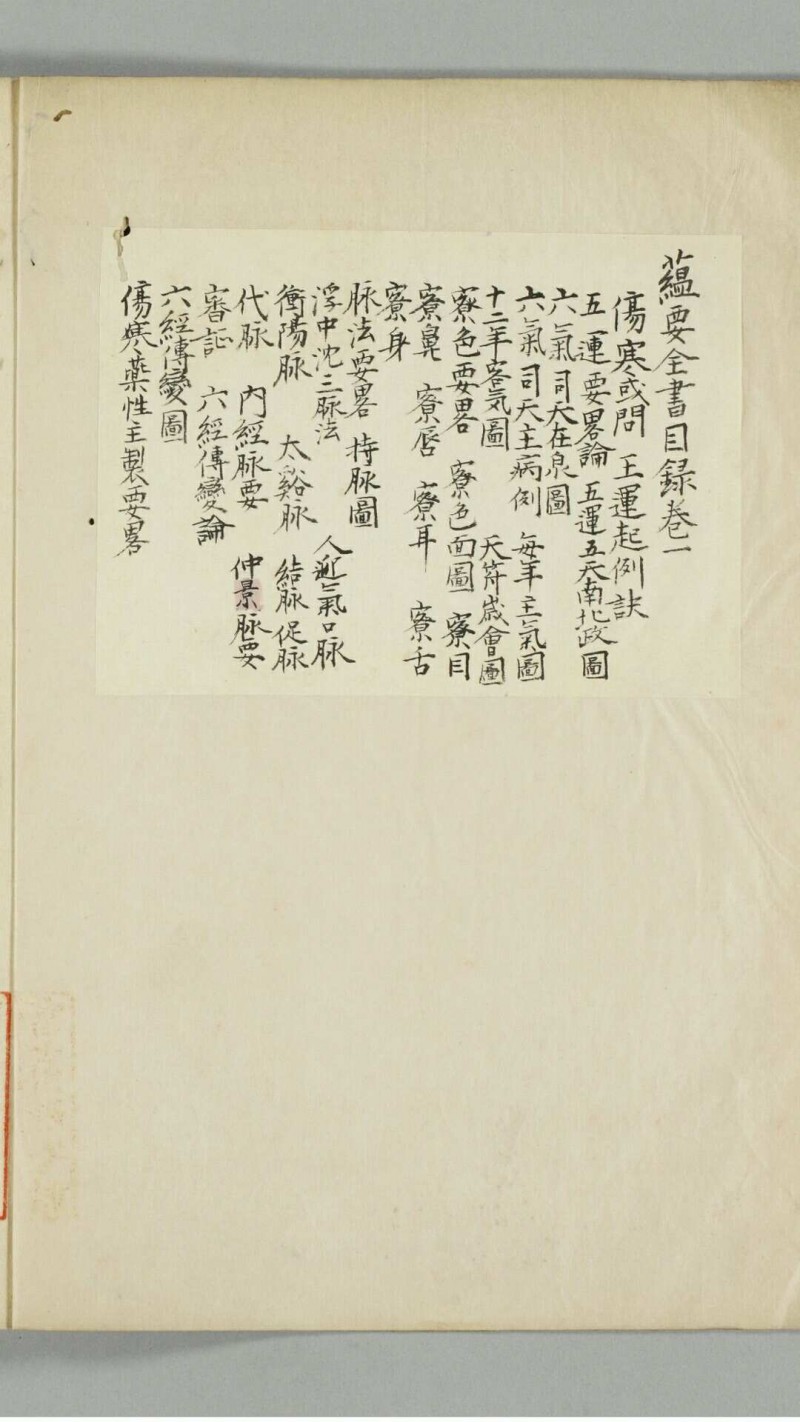 蘊要全書目録卷一
傷寒或問 王運起例訣
五運要畧論 五運五天南北政圖
六氣司天在泉圖
六氣司天主病例 每年主氣圖
十二年客氣圖 天符歲會圖
察色要畧 察色面圖 察目
察鼻 察唇 察耳 察舌
察身
脉法要畧 持脉圖
浮中沈三脉法 人迎氣口脉
衝陽脉 太谿脉 結脉促脉
代脉 內經脉要 仲景脉要
審証 六經傳變論
六經傳變圖
傷寒藥性主製要畧